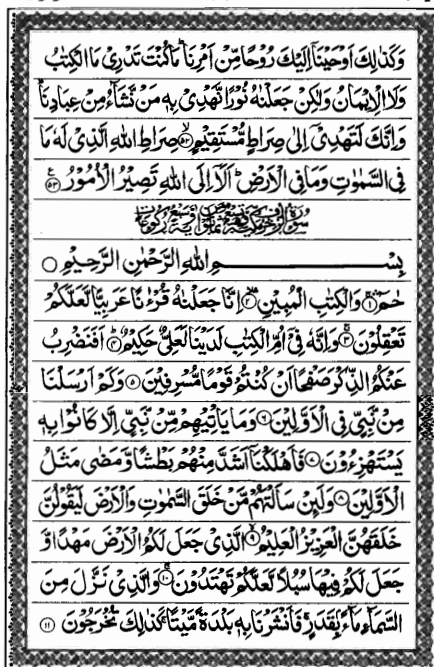 وَكَذٰلِكَ اَوْحَيْنَاۤ اِلَيْكَ رُوْحًا مِّنْ اَمْرِنَا ؕ مَا كُنْتَ تَدْرِىْ مَا الْكِتٰبُ
وَلَا الْاِيْمَانُ وَلٰكِنْ جَعَلْنٰهُ نُوْرًا نَّهْدِىْ بِهٖ مَنْ نَّشَآءُ مِنْ عِبَادِنَا ؕ
وَاِنَّكَ لَتَهْدِىْۤ اِلٰى صِرَاطٍ مُّسْتَقِيْمٍ ۙ‏﴿۵۲﴾ صِرَاطِ اللّٰهِ الَّذِىْ لَهٗ مَا
فِى السَّمٰوٰتِ وَمَا فِى الْاَرْضِ ؕ اَلَاۤ اِلَى اللّٰهِ تَصِيْرُ الْاُمُوْرُ ﴿۵۳﴾
بِسْمِ اللّٰهِ الرَّحْمٰنِ الرَّحِيْمِ
حٰمٓ ۛ﴿۱﴾ وَالْكِتٰبِ الْمُبِيْنِ ۛ﴿۲﴾ اِنَّا جَعَلْنٰهُ قُرْءٰنًا عَرَبِيًّا لَّعَلَّكُمْ
تَعْقِلُوْنَ ۚ﴿۳﴾ وَاِنَّهٗ فِىْۤ اُمِّ الْكِتٰبِ لَدَيْنَا لَعَلِىٌّ حَكِيْمٌ ؕ﴿۴﴾ اَفَنَضْرِبُ
عَنْكُمُ الذِّكْرَ صَفْحًا اَنْ كُنْتُمْ قَوْمًا مُّسْرِفِيْنَ ﴿۵﴾ وَكَمْ اَرْسَلْنَا
مِنْ نَّبِىٍّ فِى الْاَوَّلِيْنَ ﴿۶﴾ وَمَا يَاْتِيْهِمْ مِّنْ نَّبِىٍّ اِلَّا كَانُوْا بِهٖ
يَسْتَهْزِءُوْنَ ﴿۷﴾ فَاَهْلَكْنَاۤ اَشَدَّ مِنْهُمْ بَطْشًا وَّمَضٰى مَثَلُ
الْاَوَّلِيْنَ ﴿۸﴾ وَلَئِنْ سَاَلْتَهُمْ مَّنْ خَلَقَ السَّمٰوٰتِ وَالْاَرْضَ لَيَقُوْلُنَّ
خَلَقَهُنَّ الْعَزِيْزُ الْعَلِيْمُ ۙ﴿۹﴾ الَّذِىْ جَعَلَ لَكُمُ الْاَرْضَ مَهْدًا وَّ
جَعَلَ لَكُمْ فِيْهَا سُبُلًا لَّعَلَّكُمْ تَهْتَدُوْنَ ۚ﴿۱۰﴾ وَالَّذِىْ نَزَّلَ مِنَ
السَّمَآءِ مَآءًۢ بِقَدَرٍ ۚ فَاَنْشَرْنَا بِهٖ بَلْدَةً مَّيْتًا ۚ كَذٰلِكَ تُخْرَجُوْنَ ﴿۱۱﴾